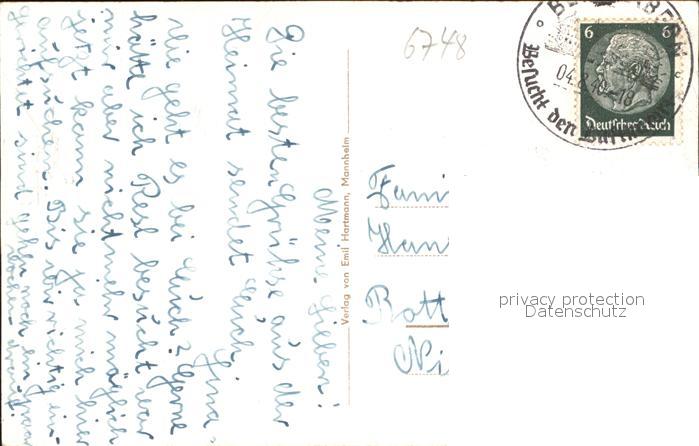 6748
Besucht den
04.
-18
6
6
Deutsches Reich
Meine Lieben!
Die besten Grüsse aus der
Heimat sendet Euch
Gina.
Wie geht es bei Euch? Gerne
hätte ich Resl besucht war
mir aber nicht mehr möglich
jetzt kann sie ja mich hier
aufsuchen. Bis wir richtig ein-
gerichtet sind gehen noch ein paar
Wochen drauf.
Verlag von Emil Hartmann, Mannheim
Fami
Han
Rott
Ni
privacy protection
Datenschutz